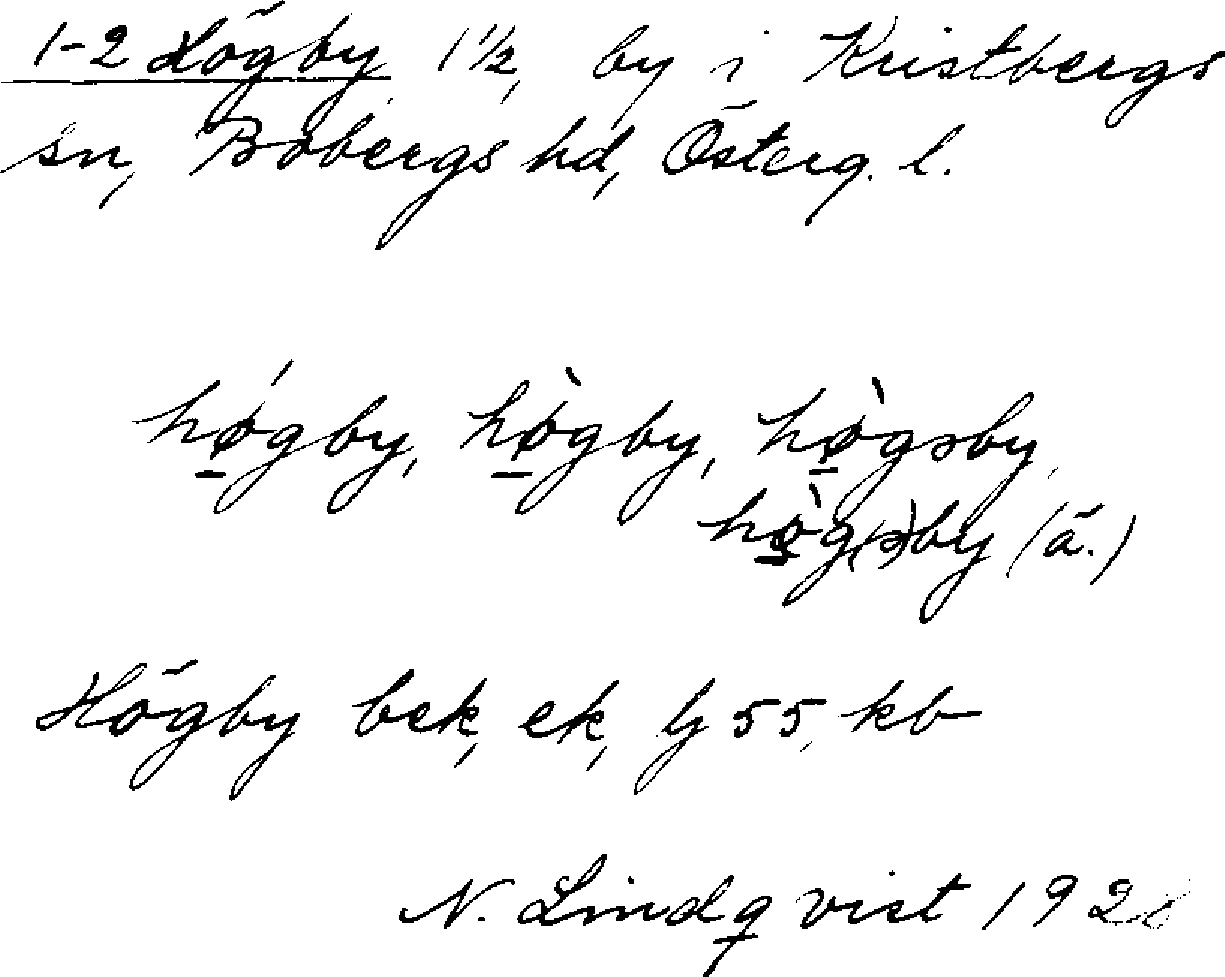 1-2 Högby 1 1/2, by i Kristbergs
sn, Bobergs hd, Österg. l.
hǿ̱gby, hø̱̀gby, hø̱̀gsby,
hø̱̀g(s)by (ä.)
Högby bek, ek, lj 55, kb
N. Lindqvist 1928